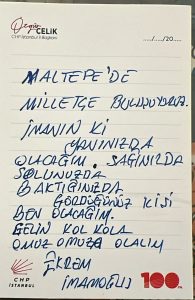 Özgür
ÇELİK
CHP İstanbul İl Başkanı
..../..../20....
MALTEPE'DE
MİLLETÇE BULUŞUYORUZ.
İNANIN Kİ
YANINIZDA
OLACAĞIM. SAĞINIZDA
SOLUNUZDA
BAKTIĞINIZDA
GÖRDÜĞÜNÜZ KİŞİ
BEN OLACAĞIM.
GELİN KOL KOLA
OMUZ OMUZA OLALIM
EKREM
İMAMOĞLU
CHP
İSTANBUL
100